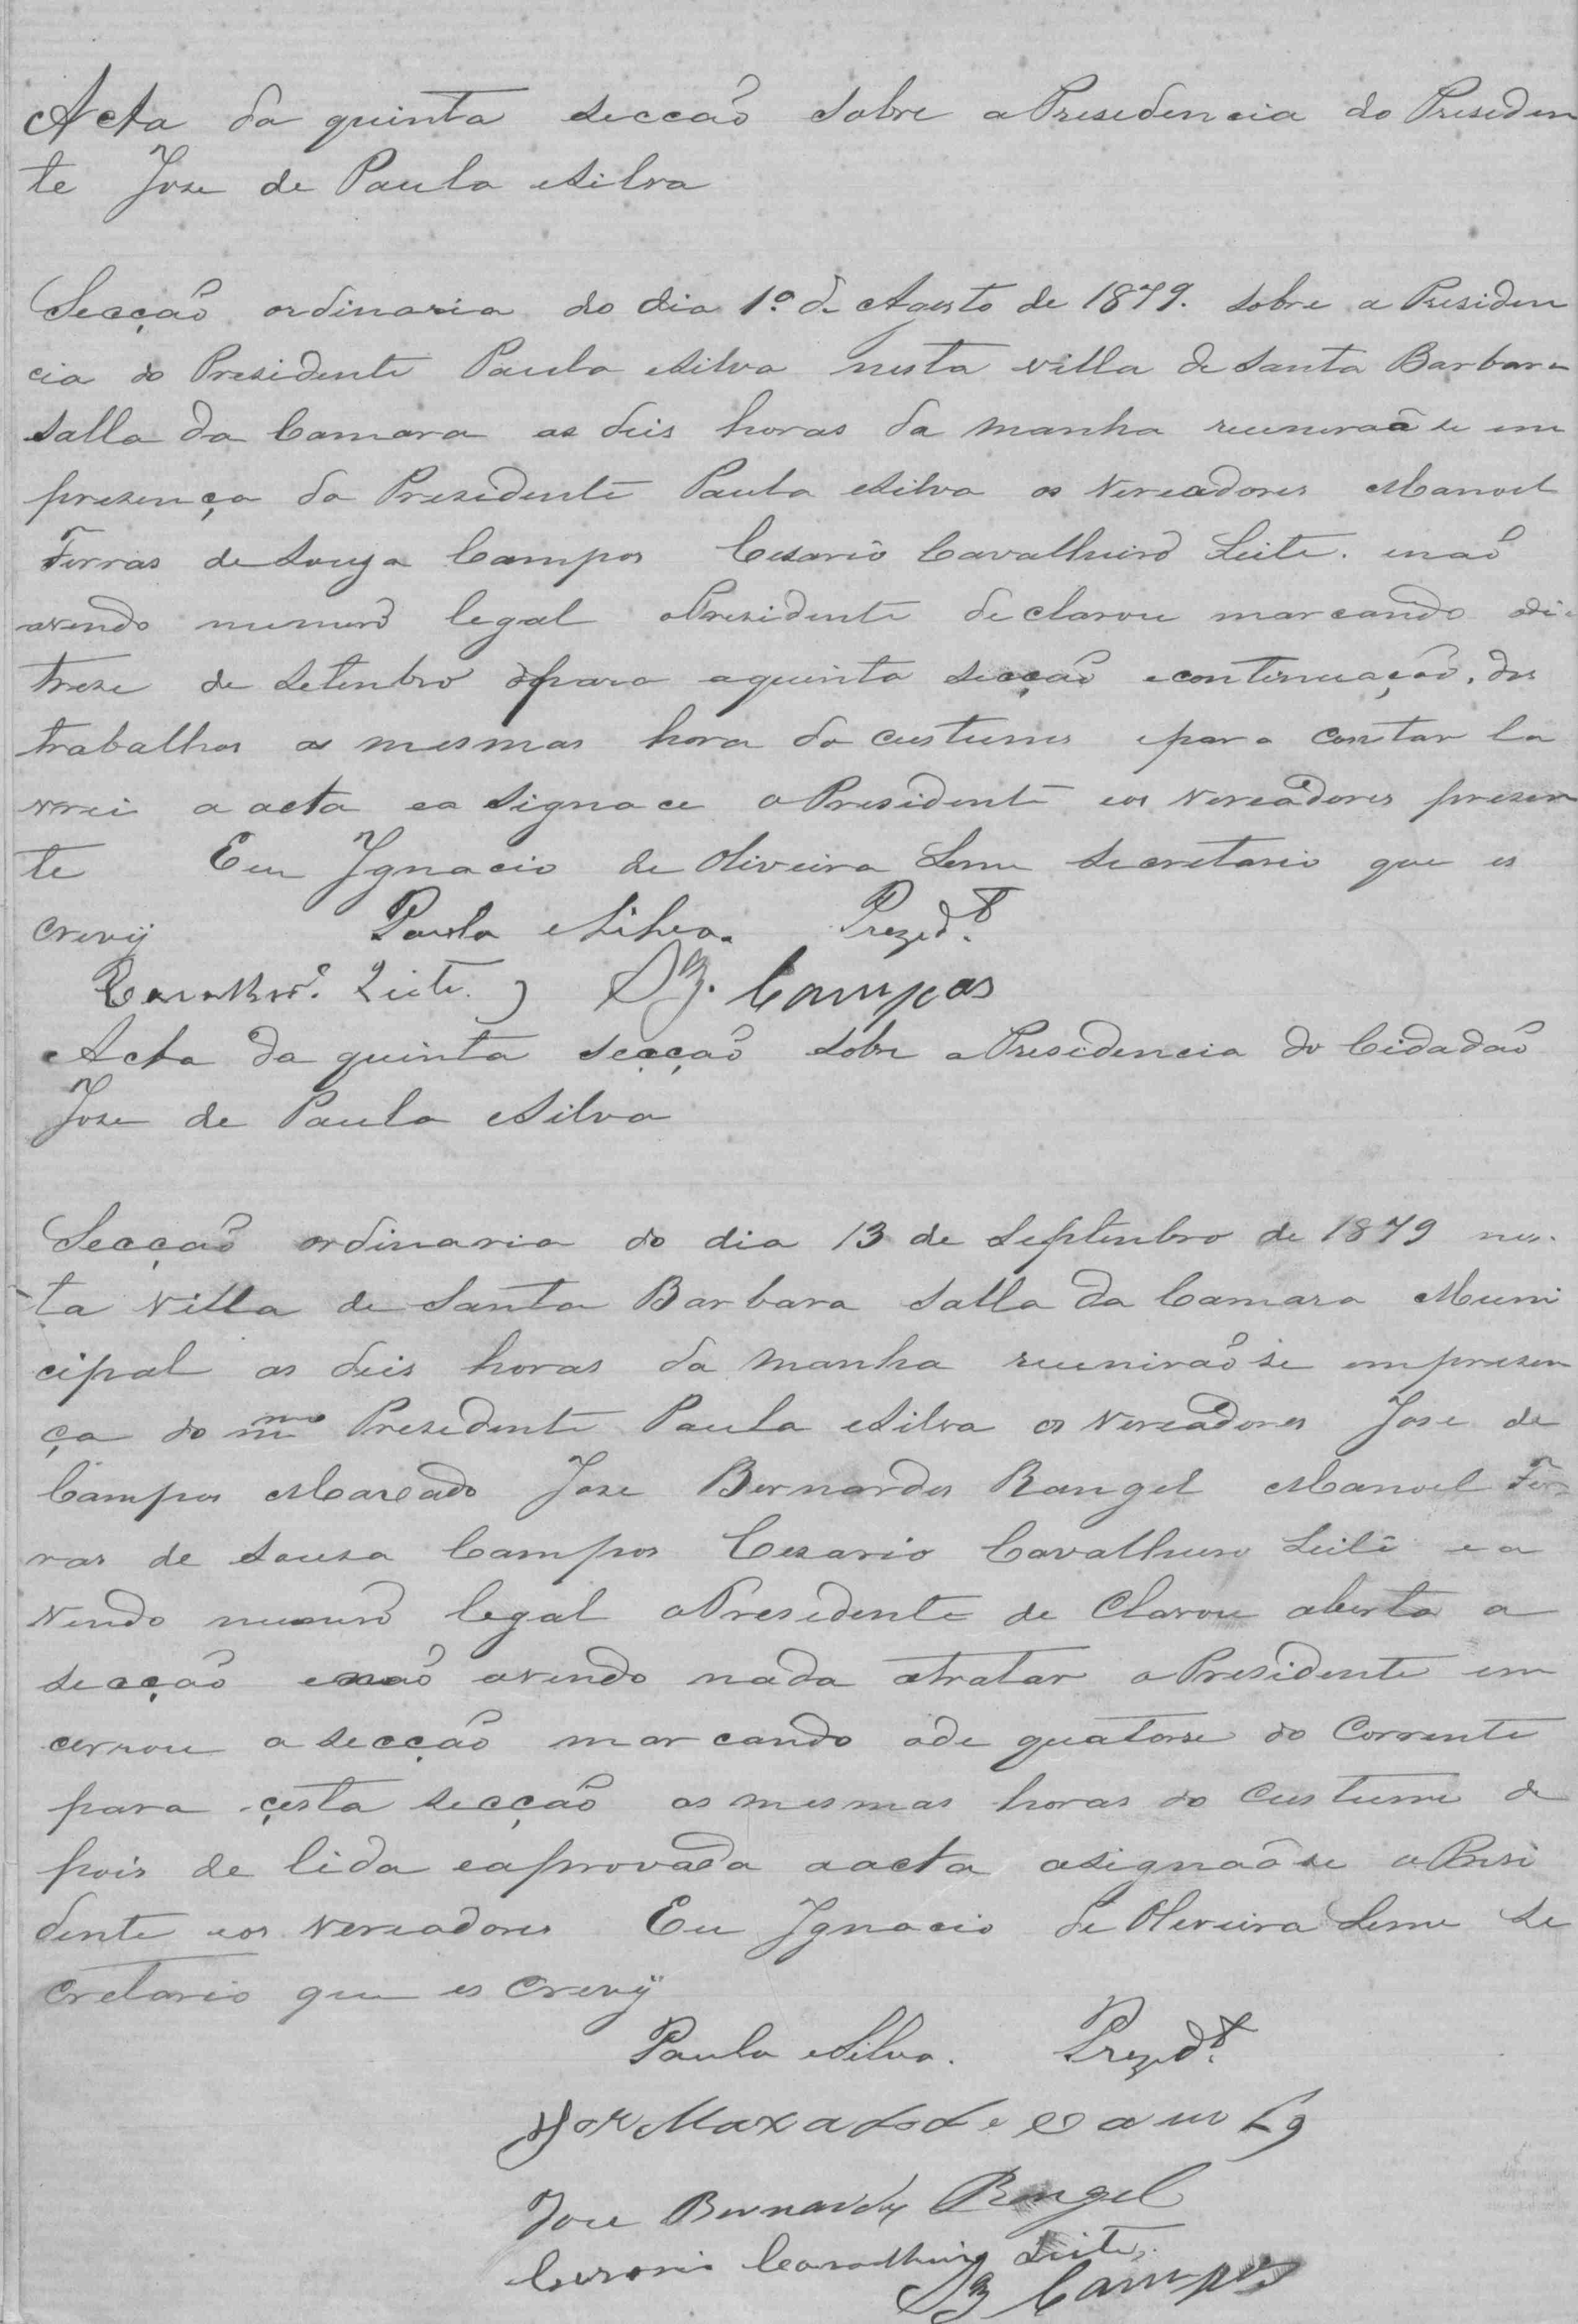 Acta da quinta seccaõ sobre a Presedencia do Presiden
te Jose de Paula e Silva
Secçaõ ordinaria do dia 1º de Agosto de 1879. sobre a Presiden
cia do Presidente Paula e Silva nesta villa de Santa Barbara
salla da Camara as deis horas da manha reuniraõ se em
presença do Presidente Paula e Silva os Vereadores Manoel
Ferras de Souza Campos Cesario Cavalheiro Leite. e naõ
avendo numero legal o Presidente declarou marcando o di
trese de Setenbro para a quinta secçaõ e continuaçaõ dos
trabalhos as mesmas hora do custume e para constar la
verei a acta e a signace o Presidente e os Vereadores presen
te Eu Ignacio de Oliveira Leme secretario que es
crevij Paula e Silva. Prezed.te
Cavalhro. Leite. Sz. Campos
Acta da quinta secçaõ sobre a Presedencia do Cidadaõ
Jose de Paula e Silva
Secçaõ ordinaria do dia 13 de Septenbro de 1879 nes
ta Villa de Santa Barbara salla da Camara Muni
cipal as deis horas da manha reuniraõ se em presen
ça do mmo Presidente Paula e Silva os Vereadores Jose de
Campos Maxado Jose Bernardes Rangel Manoel Fer
ras de Sousa Campos Cezario Cavalheiro Leite e a
vendo numero legal o Presidente de Clarou aberta a
secçaõ e naõ avendo nada a tratar o Presidente em
cerrou a secçaõ marcando o de quatorse do Corrente
para çesta secçaõ as mesmas horas do Custume de
pois de lida e aprovada a acta asignaõ se o Presi
dente e os Vereadores Eu Ignacio de Oliveira Leme se
cretario que es crevij
Paula e Silva. Prezed.te
Jose Maxado de Camps
Jose Bernardes Rangel
Cezario Cavalheiro Leite
Sz Campos